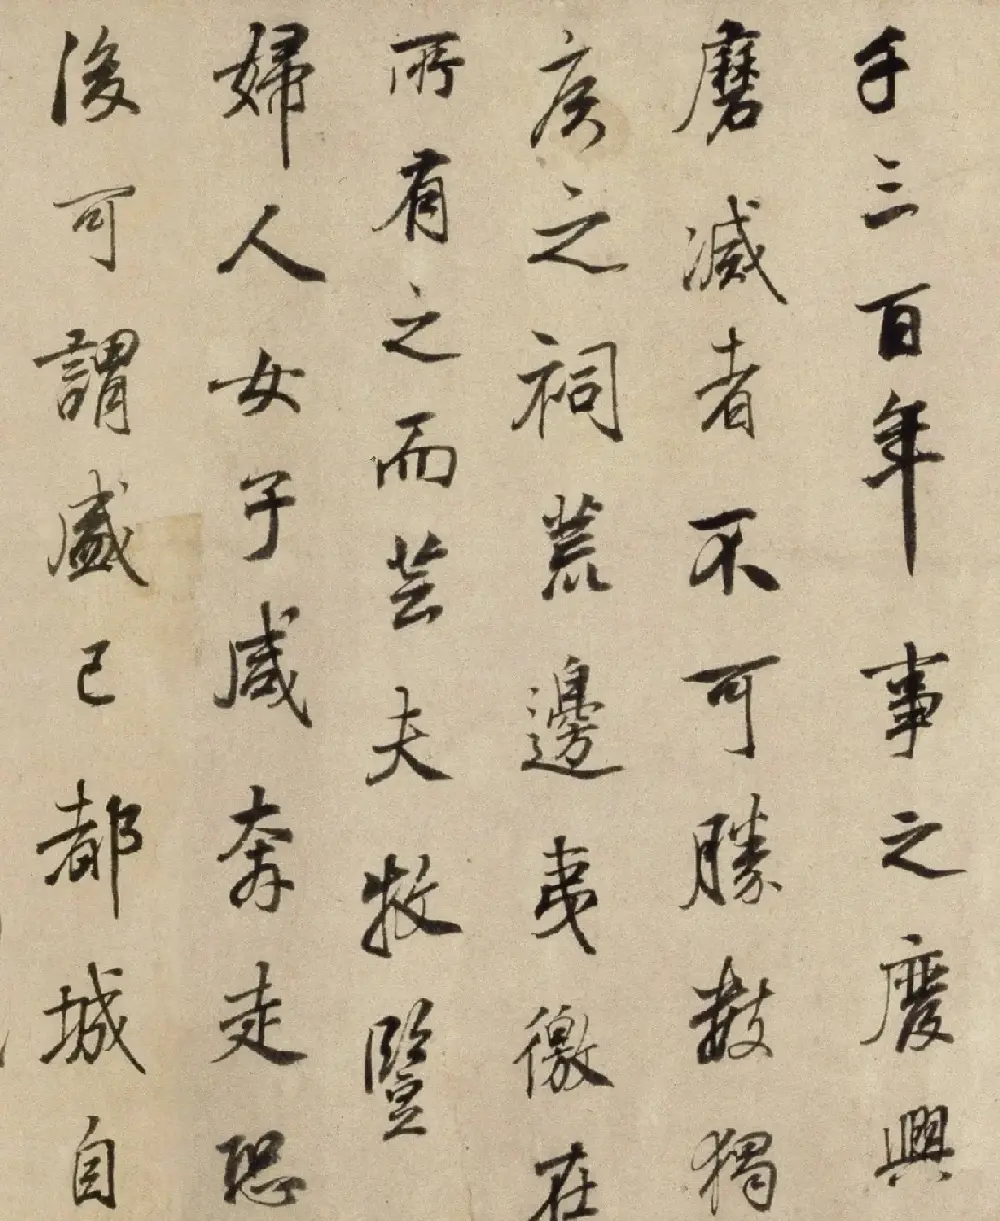 千三百年事之廢興
磨滅者不可勝數獨
侯之祠荒邊夷徼在
所有之而芸夫牧豎
婦人女子咸奔走恐
後可謂盛已都城自